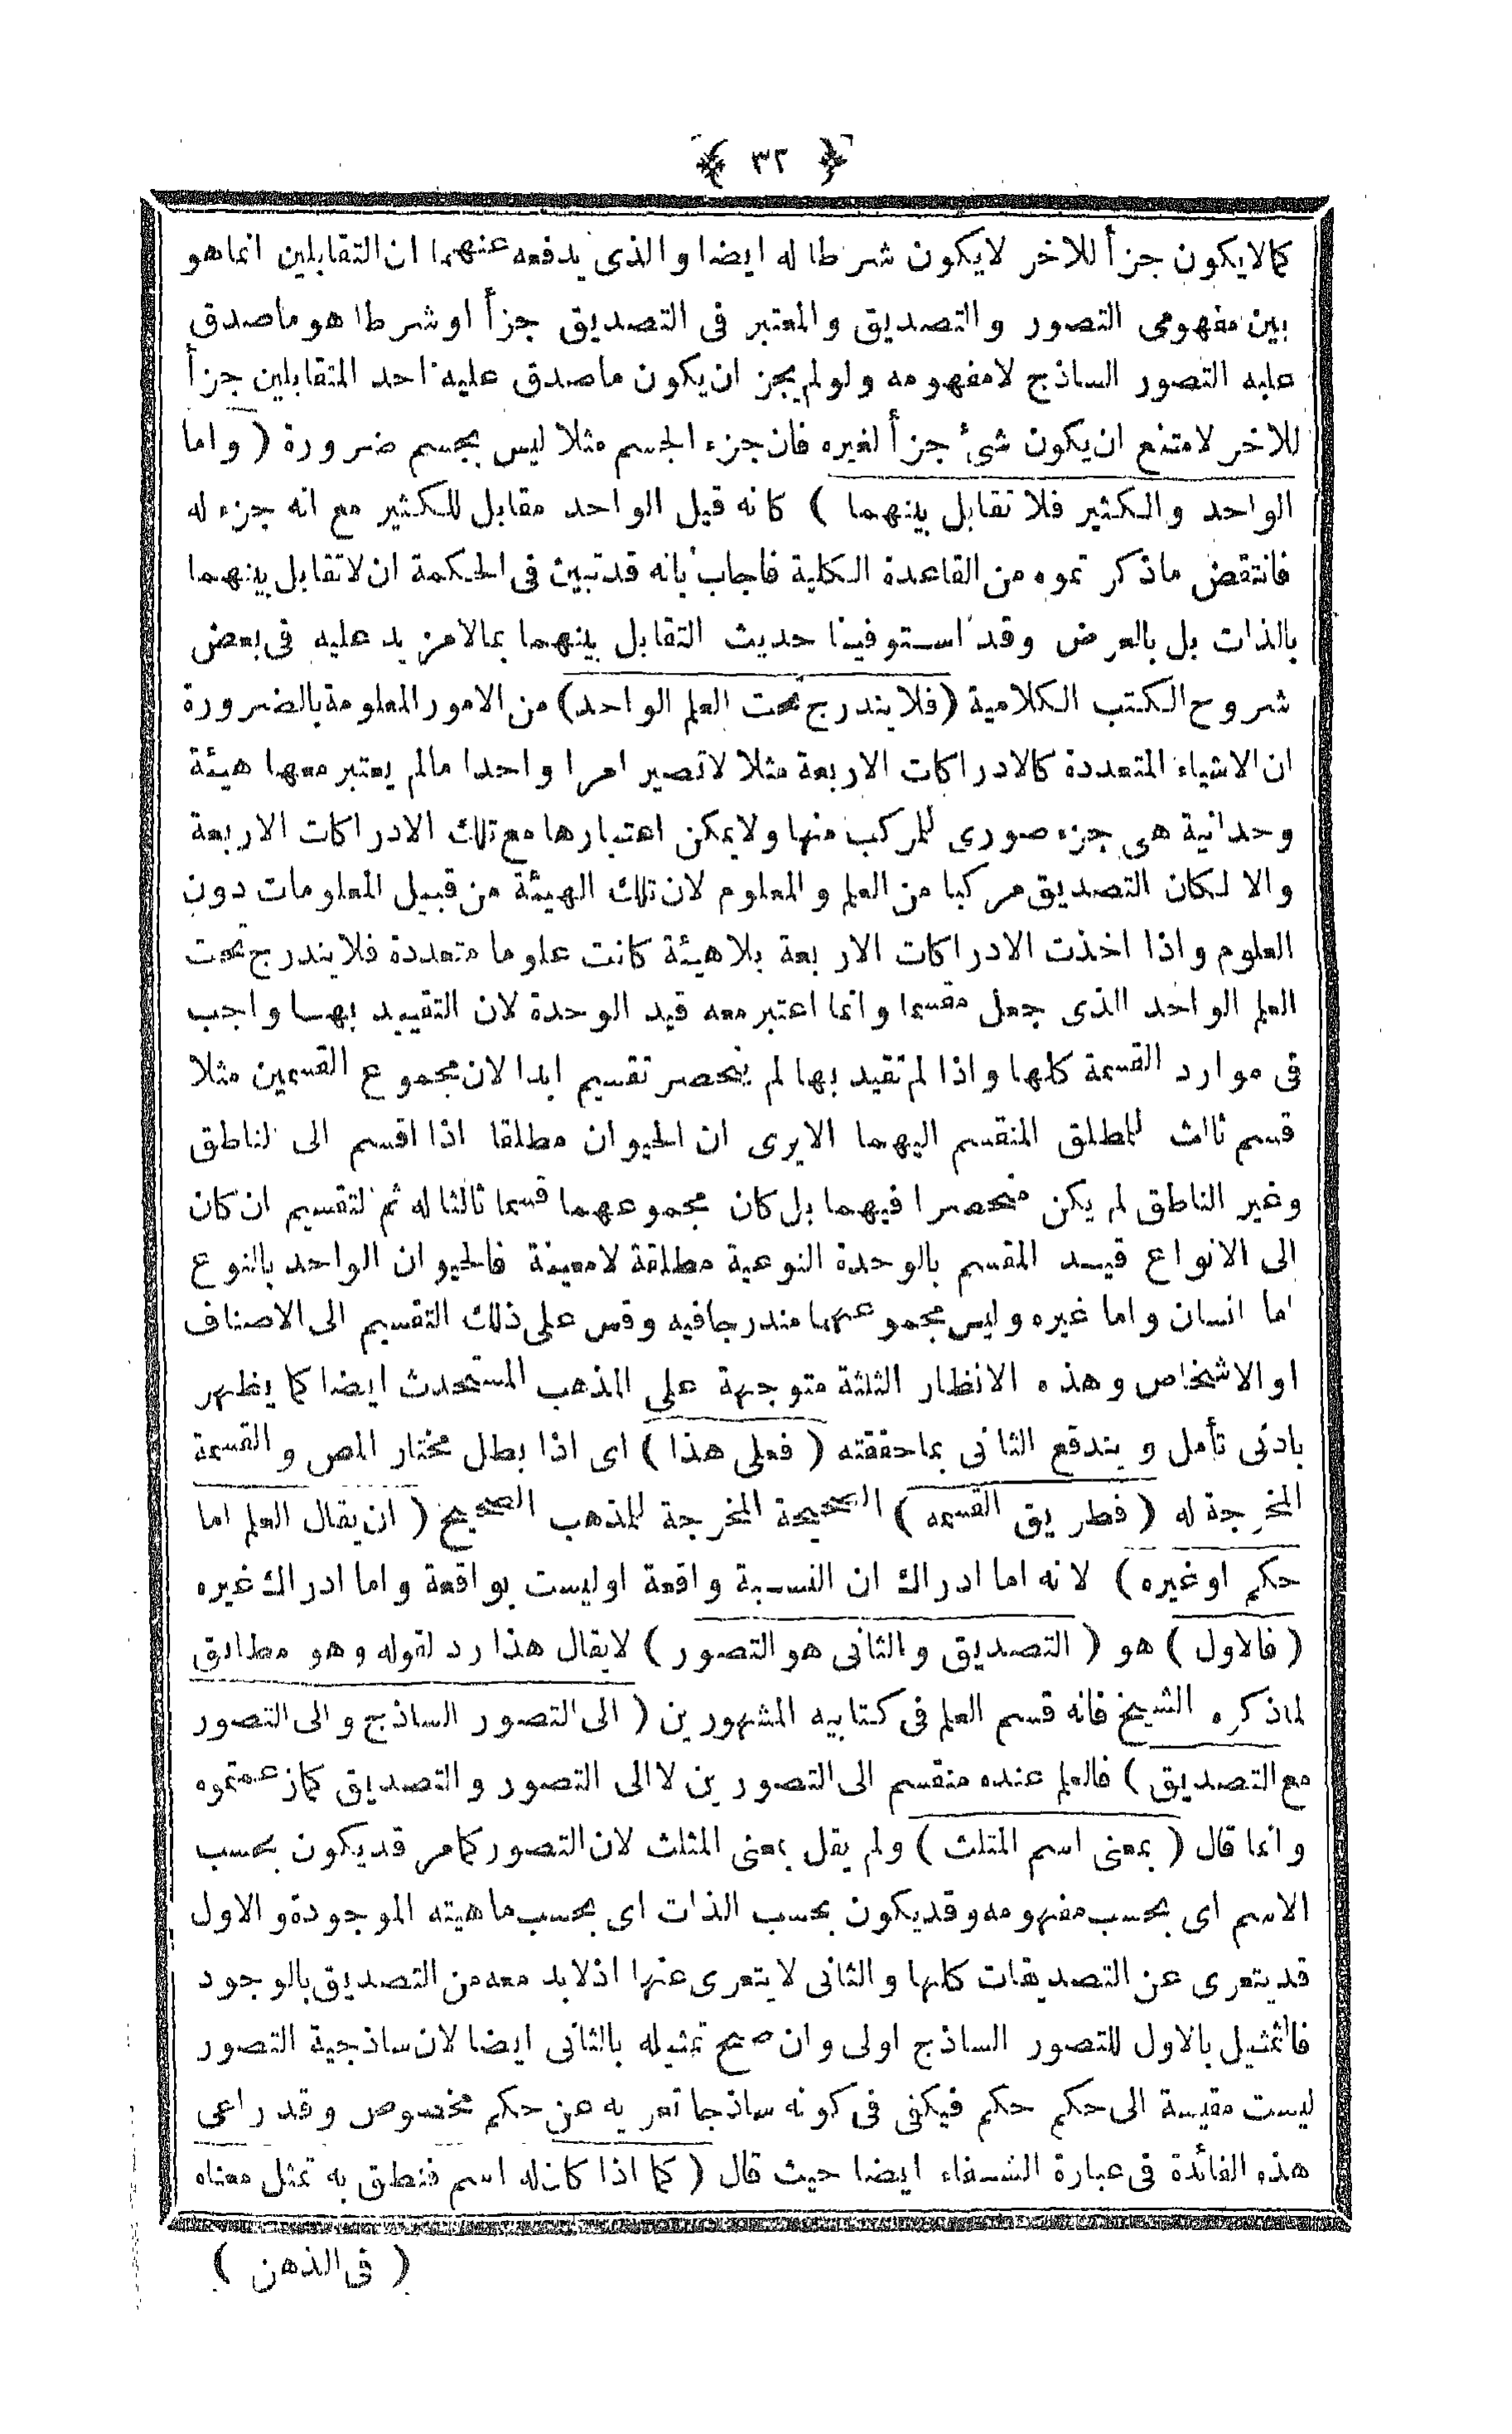 ﴿ ٣٢ ﴾
كما لا يكون جزأ للاخر لا يكون شرطا له ايضا والذى يدفعه عنهما ان التقابلين انما هو
بين مفهومى التصور والتصديق والمعتبر فى التصديق جزأ او شرطا هو ما صدق
عليه التصور الساذج لا مفهومه ولو لم يجز ان يكون ما صدق عليه احد المتقابلين جزأ
للاخر لامتنع ان يكون شئ جزأ لغيره فان جزء الجسم مثلا ليس بجسم ضرورة ( واما
الواحد والكثير فلا تقابل بينهما ) كانه قيل الواحد مقابل للكثير مع انه جزء له
فانتقض ما ذكرتموه من القاعدة الكلية فاجاب بانه قد تبين فى الحكمة ان لا تقابل بينهما
بالذات بل بالعرض وقد استوفينا حديث التقابل بينهما بما لا مزيد عليه فى بعض
شروح الكتب الكلامية (فلا يندرج تحت العلم الواحد) من الامور المعلومة بالضرورة
ان الاشياء المتعددة كالادراكات الاربعة مثلا لا تصير امرا واحدا ما لم يعتبر معها هيئة
وحدانية هى جزء صورى للمركب منها ولا يمكن اعتبارها مع تلك الادراكات الاربعة
والا لكان التصديق مركبا من العلم والمعلوم لان تلك الهيئة من قبيل المعلومات دون
العلوم واذا اخذت الادراكات الاربعة بلا هيئة كانت علوما متعددة فلا يندرج تحت
العلم الواحد الذى جعل مقسما وانما اعتبر معه قيد الوحدة لان التقييد بها واجب
فى موارد القسمة كلها واذا لم تقيد بها لم ينحصر تقسيم ابدا لان مجموع القسمين مثلا
قسم ثالث للمطلق المنقسم اليهما الا يرى ان الحيوان مطلقا اذا اقسم الى لناطق
وغير الناطق لم يكن منحصرا فيهما بل كان مجموعهما قسما ثالثا له ثم لتقسيم ان كان
الى الانواع قيد المقسم بالوحدة النوعية مطلقة لا معينة فالحيوان الواحد بالنوع
اما انسان واما غيره وليس مجموعهما مندرجا فيه وقس على ذلك التقسيم الى الاصناف
او الاشخاص وهذه الانظار الثلثة متوجهة على المذهب المستحدث ايضا كما يظهر
بادنى تأمل ويندفع الثانى بما حققته ( فعلى هذا ) اى اذا بطل مختار المص والقسمة
المخرجة له ( فطريق القسمه ) الصحيحة المخرجة للمذهب الصحيح ( ان يقال العلم اما
حكم او غيره ) لانه اما ادراك ان النسبة واقعة او ليست بواقعة واما ادراك غيره
( فالاول ) هو ( التصديق والثانى هو التصور ) لا يقال هذا رد لقوله وهو مطابق
لما ذكره الشيخ فانه قسم العلم فى كتابيه المشهورين ( الى التصور الساذج والى التصور
مع التصديق ) فالعلم عنده منقسم الى التصورين لا الى التصور والتصديق كما زعمتموه
وانما قال ( بمعنى اسم المثلث ) ولم يقل بمعنى المثلث لان التصور كما مر قد يكون بحسب
الاسم اى بحسب مفهومه وقد يكون بحسب الذات اى بحسب ماهيته الموجودة والاول
قد يتعرى عن التصديقات كلها والثانى لا يتعرى عنها اذ لا بد معه من التصديق بالوجود
فالتمثيل بالاول للتصور الساذج اولى وان صح تمثيله بالثانى ايضا لان ساذجية التصور
ليست مقيسة الى حكم حكم فيكفى فى كونه ساذجا تعريه عن حكم مخصوص وقد راعى
هذه الفائدة فى عبارة الشفاء ايضا حيث قال ( كما اذا كان له اسم فنطق به تمثل معناه
( فى الذهن )